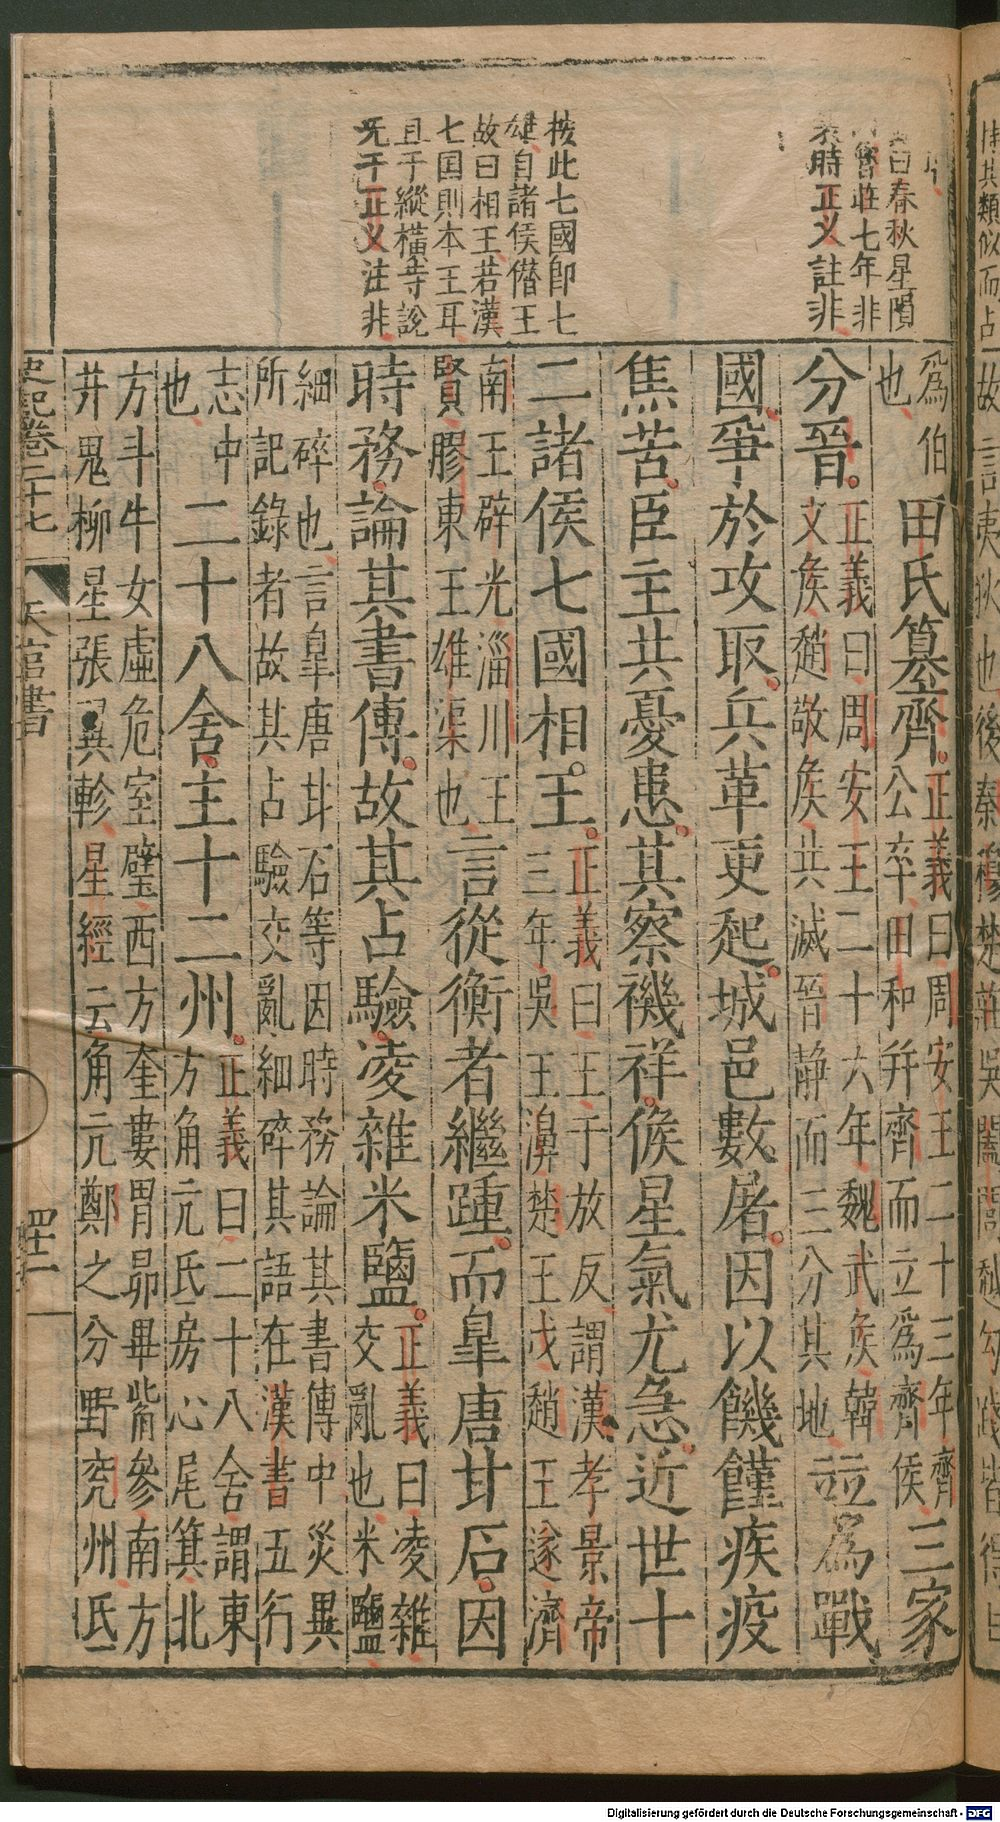 曰春秋星隕
魯莊七年非
時正义註非
按此七國即七
雄自諸侯僣王
故曰相王若漢
七国則本王耳
且于縱橫等說
无干正义注非
爲伯
也
田氏篡齊
正義曰周安王二十三年齊
公卒田和并齊而立爲齊侯
三家
分晉
正義曰周安王二十六年魏武侯韓
文侯趙敬侯共滅晉静而三分其地
竝爲戰
國爭於攻取兵革更起城邑數屠因以饑饉疾疫
焦苦臣主共憂患其察禨祥候星氣尤急近世十
二諸侯七國相王
正義曰王于放反謂漢孝景帝
三年吳王濞楚王戊趙王遂濟
南王辟光淄川王
賢膠東王雄渠也
言從衡者繼踵而臯唐甘石因
時務論其書傳故其占驗凌雜米鹽
正義曰凌雜
交亂也米鹽
細碎也言臯唐甘石等因時務論其書傳中災異
所記錄者故其占驗交亂細碎其語在漢書五行
志中
也
二十八舍主十二州
正義曰二十八舍謂東
方角亢氐房心尾箕北
方斗牛女虛危室壁西方奎婁胃昴畢觜參南方
井鬼柳星張翼軫星經云角亢鄭之分野兖州氐
史記卷二十七 天官書 四十一